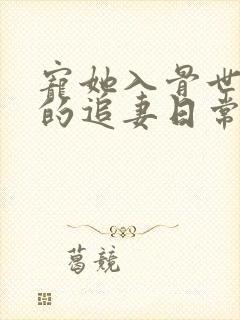 寵她入骨世
的追妻日常
葛競